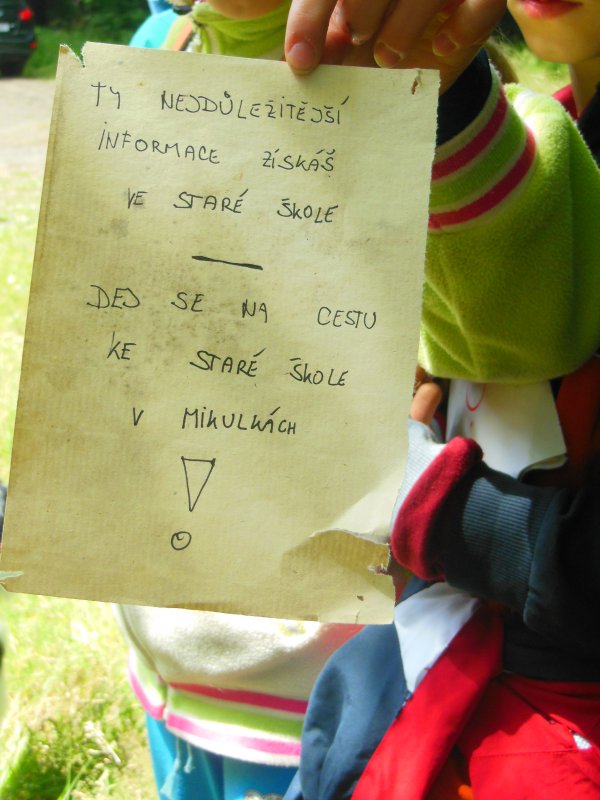 TY NEJDŮLEŽITĚJŠÍ
INFORMACE ZÍSKÁŠ
VE STARÉ ŠKOLE
—
DEJ SE NA CESTU
KE STARÉ ŠKOLE
V MIKULKÁCH
!